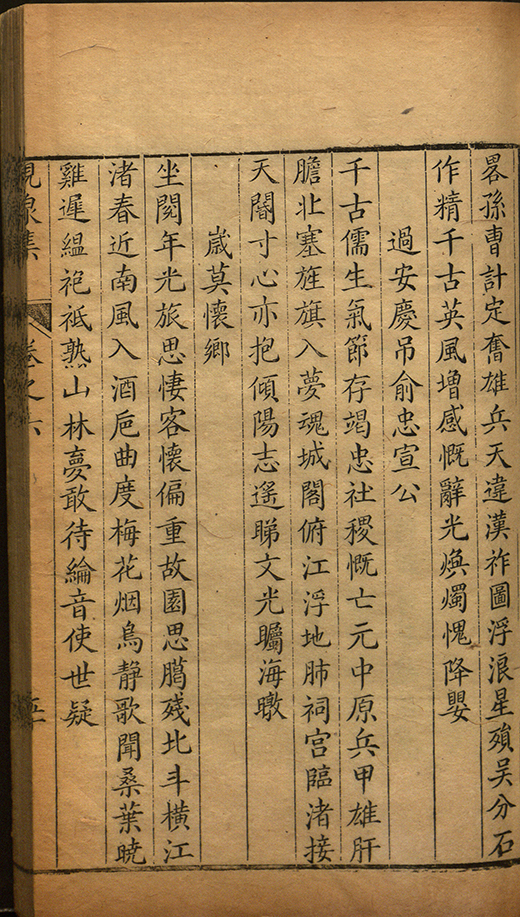 畧孫曹計定奮雄兵天違漢祚圖浮浪星殞吴分石
作精千古英風增感慨辭光煥燭愧降嬰
過安慶吊俞忠宣公
千古儒生氣節存竭忠社稷慨亡元中原兵甲雄肝
膽北塞旌旗入夢魂城閣俯江浮地肺祠宫臨渚接
天閽寸心亦抱傾陽志遥睇文光矚海暾
歲莫懷鄉
坐閲年光旅思悽客懷偏重故園思臈殘北斗橫江
渚春近南風入酒巵曲度梅花烟鳥静歌聞桑葉曉
雞遲緼袍祗熟山林夢敢待綸音使世疑
集 卷之六